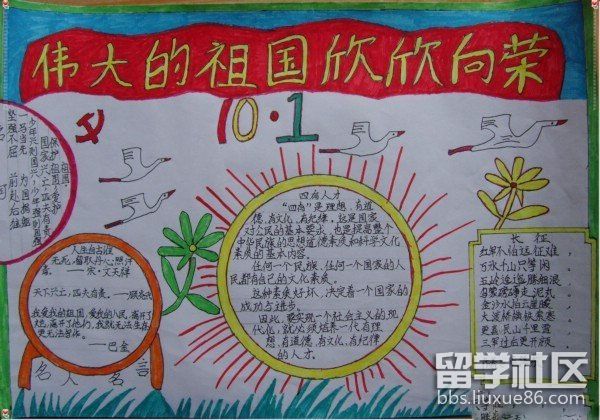 伟大的祖国欣欣向荣
10·1
祖国：
保护祖国
国家兴亡，匹夫有责
少年兴则国兴，少年强则国强
一马当先 为国捐躯
坚强不屈 前赴后继
人生自古谁
无死，留取丹心照汗
青。——宋·文天祥
天下兴亡，匹夫有责。——顾炎武
我爱我的祖国，爱我的人民，离开了
她，离开了他们，我就无法生存，
更无法写作。
——巴金
名人名言
四有人才
“四有”是理想、有道
德、有文化、有纪律，这是国家
对公民的基本要求，也是提高整个
中华民族的思想道德素质和科学文化
素质的基本内容。
任何一个民族、任何一个国家的人
民都有自己的文化素质。
这种素质好坏，决定着一个国家的
成功与进步。
因此，要实现一个社会主义的现
代化，就必须培养一代有理
想、有道德、有文化、有纪律
的人才。
长征
红军不怕远征难，
万水千山只等闲
五岭逶迤腾细浪
乌蒙磅礴走泥丸
金沙水拍云崖暖
大渡桥横铁索寒
更喜岷山千里雪
三军过后尽开颜
留学社区
bbs.liuxue86.com